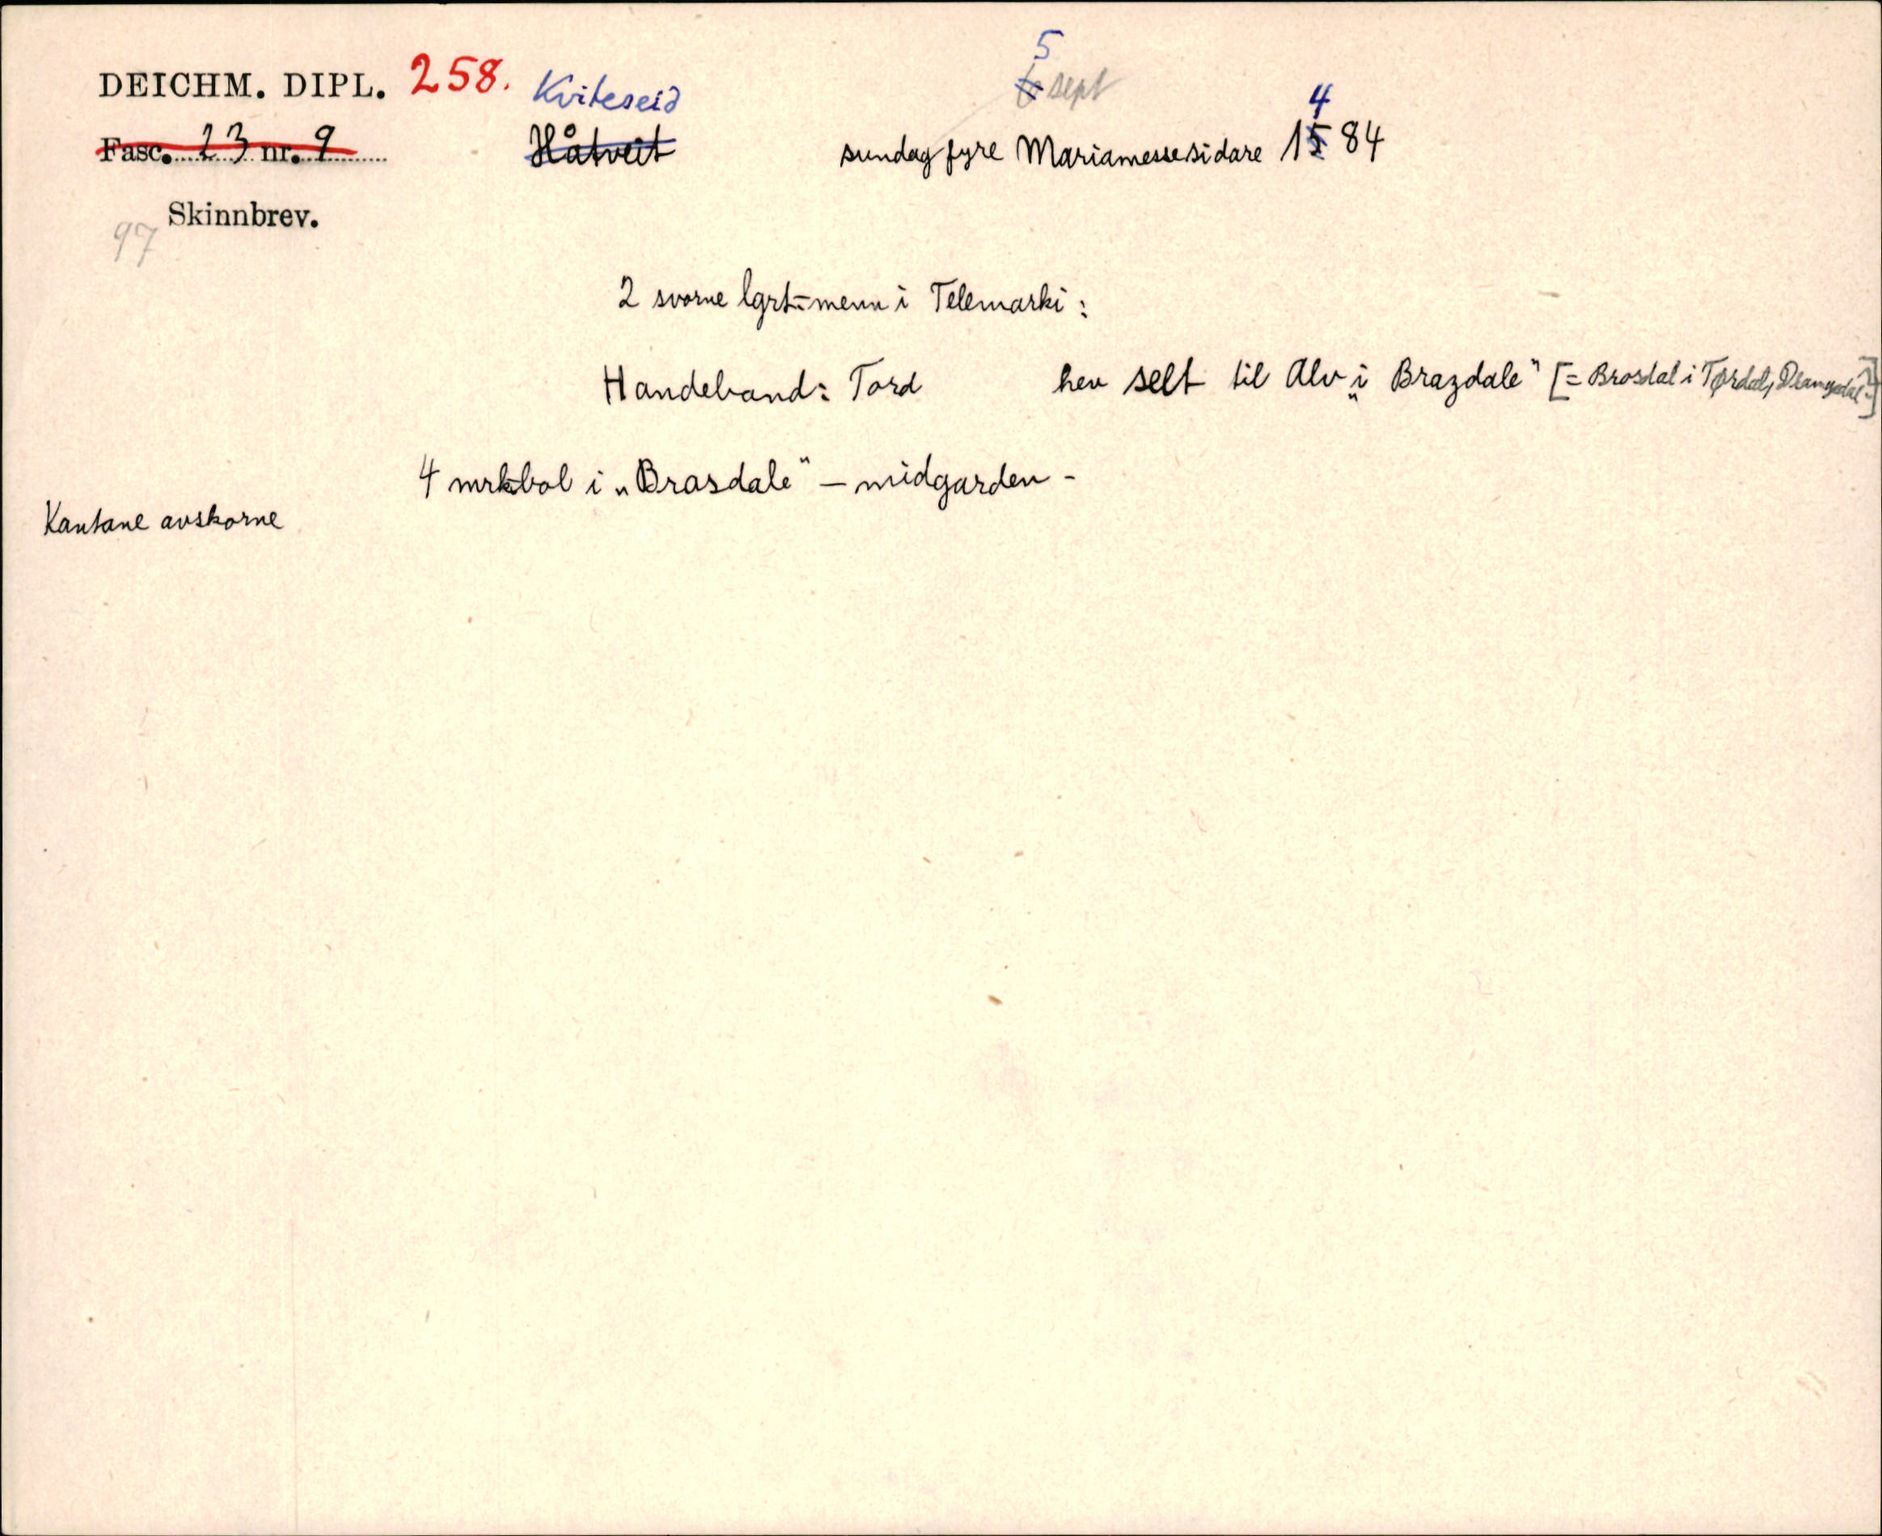 DEICHM. DIPL. 258. Kviteseid 5 6 sept
Fasc. 23 nr. 9 Håtveit sundag fyre Mariamesse sidare 1584 4
Skinnbrev.
97
2 svorne lgrt-menn i Telemarki:
Handeband: Tord hev selt til Alv „i Brazdale" [= Brosdal i Tørdal, Drangedal]
4 mrkbol i „Brasdale" – midgarden –
Kantane avskorne